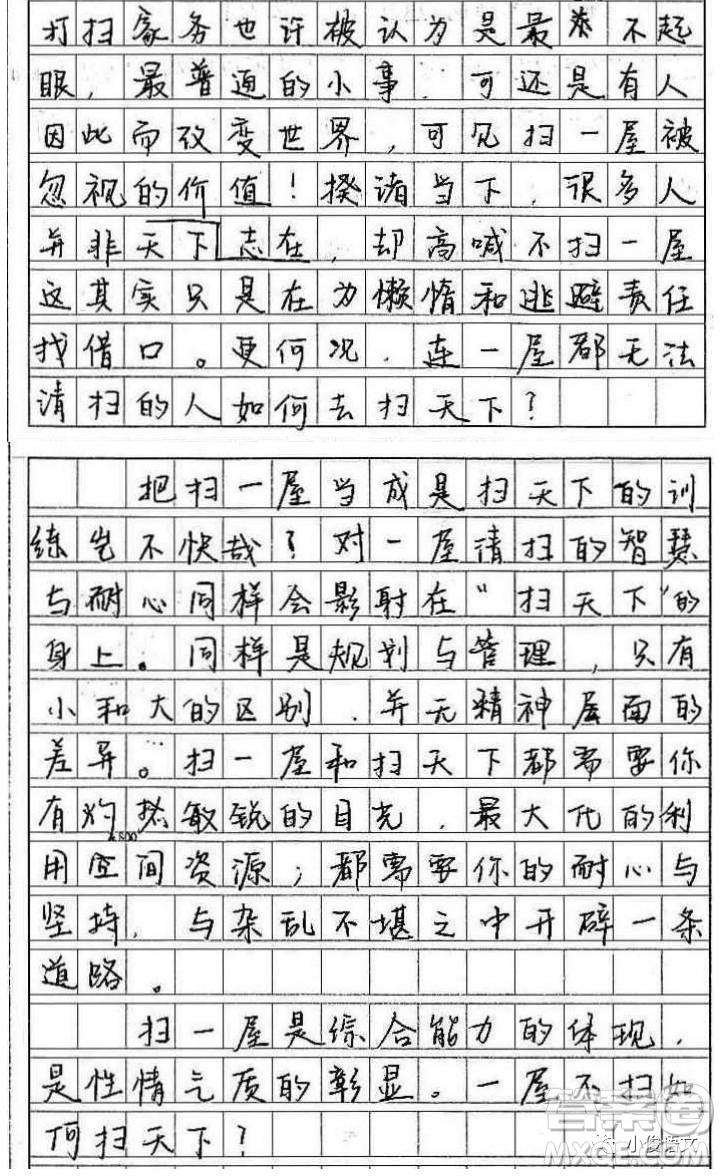 打扫家务也许被认为是最不起
眼，最普通的小事，可还是有人
因此而改变世界，可见扫一屋被
忽视的价值！揆诸当下，很多人
并非天下志在，却高喊不扫一屋
这其实只是在为懒惰和逃避责任
找借口。更何况，连一屋都无法
清扫的人如何去扫天下？
把扫一屋当成是扫天下的训
练岂不快哉？对一屋清扫的智慧
与耐心同样会影射在“扫天下”的
身上。同样是规划与管理，只有
小和大的区别，并无精神层面的
差异。扫一屋和扫天下都需要你
有灼敏锐的目光，最大化的利
800
用空间资源；都需要你的耐心与
坚持，与杂乱不堪之中开辟一条
道路。
扫一屋是综合能力的体现，
是性情气质的彰显。一屋不扫如
何扫天下？
答案圈
MXQE.COM